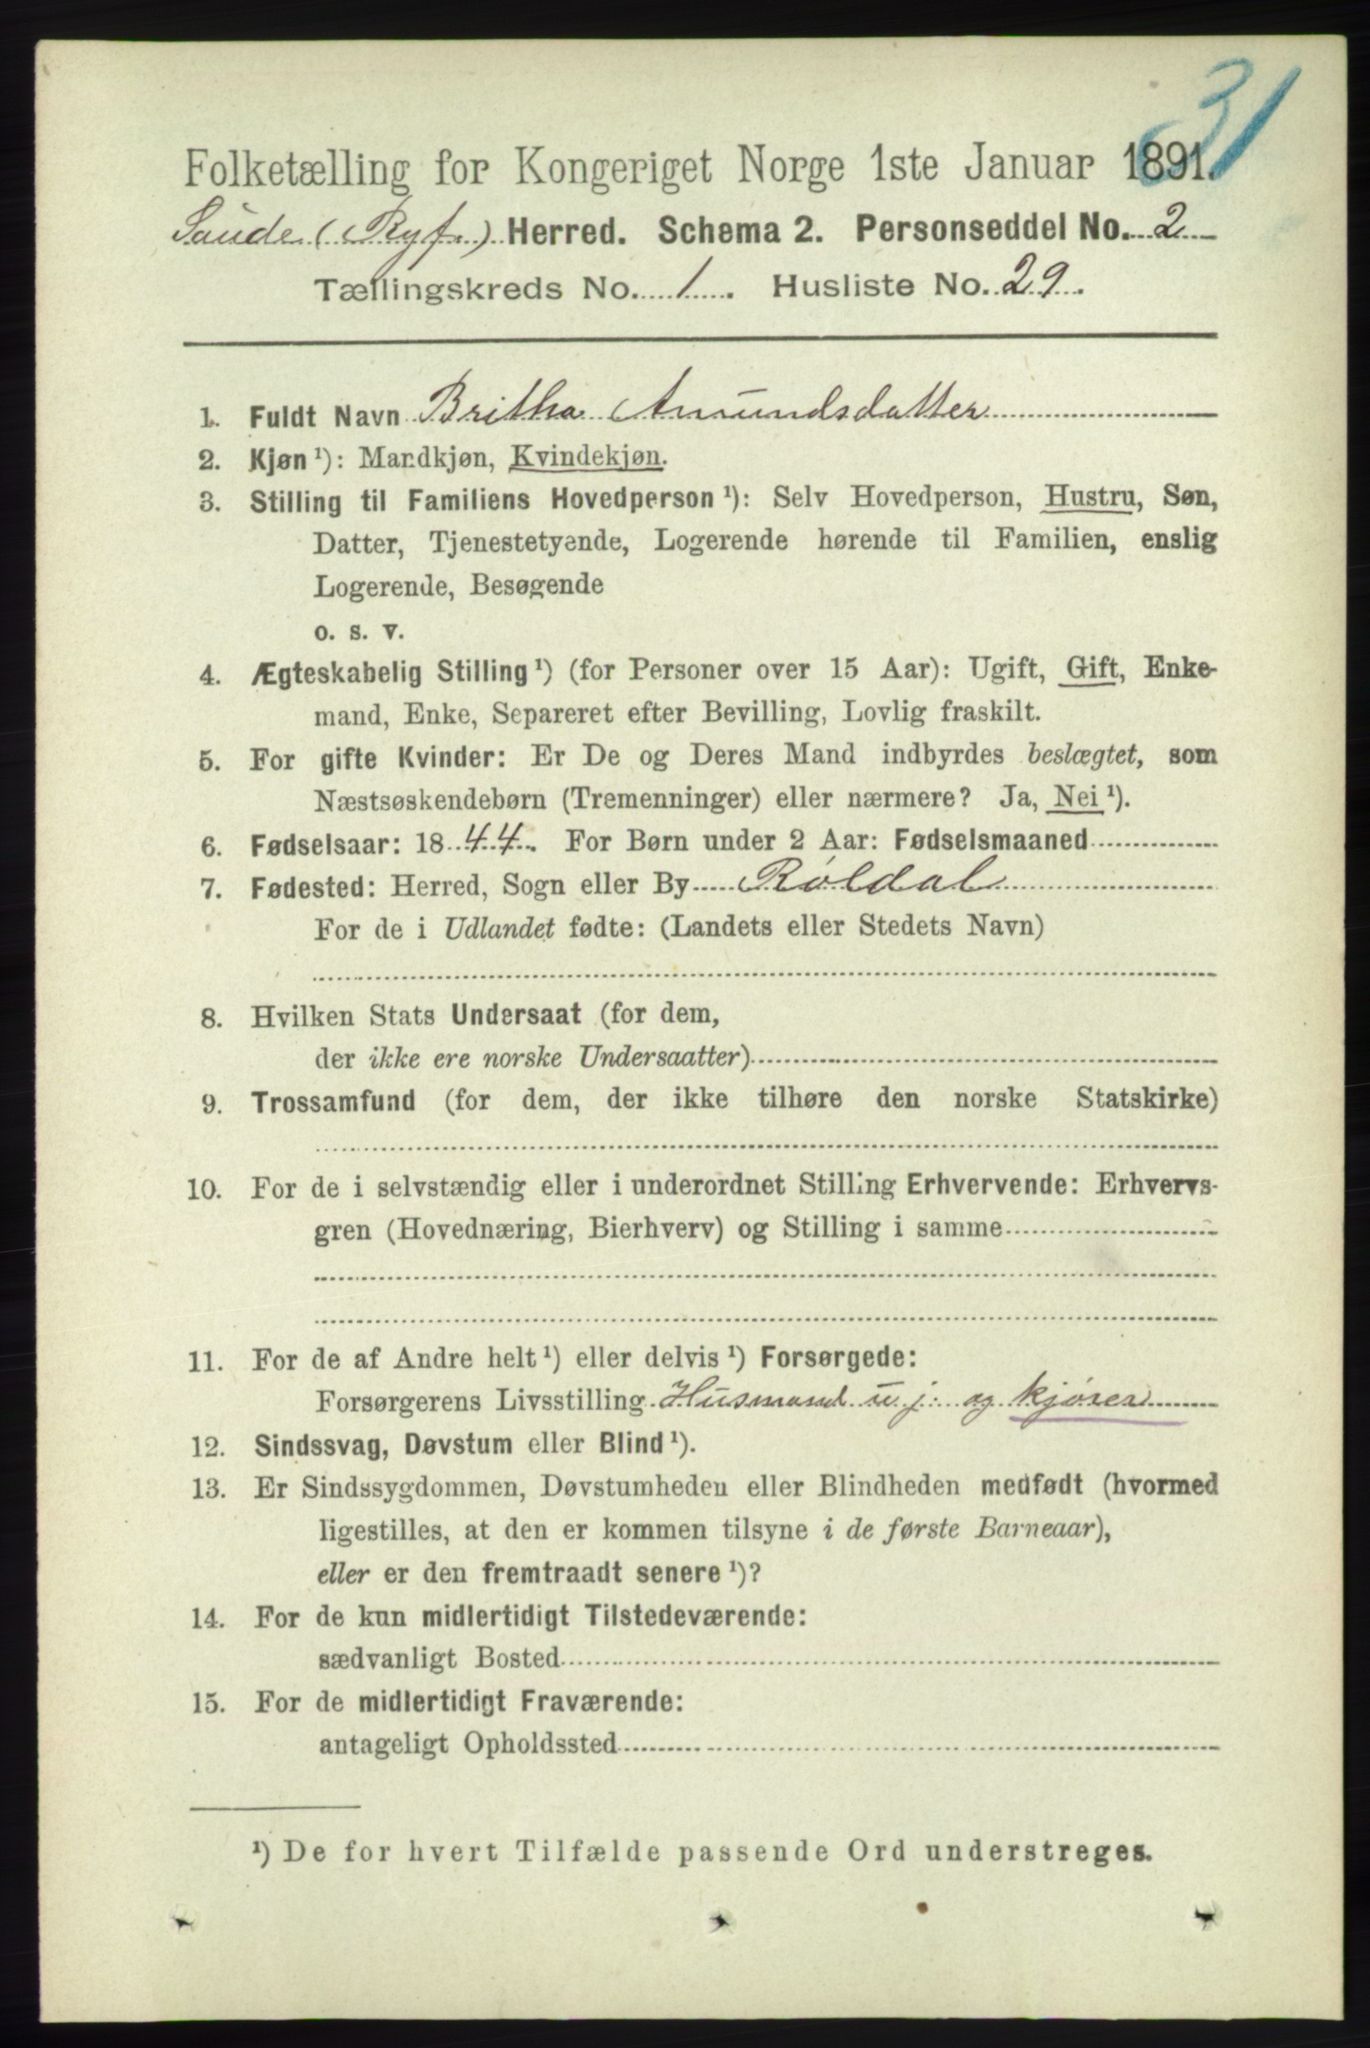 31
Folketælling for Kongeriget Norge 1ste Januar 1891.
Saude (Ryf.) Herred. Schema 2. Personseddel No. 2
Tællingskreds No. 1. Husliste No. 29.
1. Fuldt Navn Britha Amundsdatter
2. Kjøn¹): Mandkjøn, Kvindekjøn.
3. Stilling til Familiens Hovedperson¹): Selv Hovedperson, Hustru, Søn,
Datter, Tjenestetyende, Logerende hørende til Familien, enslig
Logerende, Besøgende
o. s. v.
4. Ægteskabelig Stilling¹) (for Personer over 15 Aar): Ugift, Gift, Enke-
mand, Enke, Separeret efter Bevilling, Lovlig fraskilt.
5. For gifte Kvinder: Er De og Deres Mand indbyrdes beslægtet, som
Næstsøskendebørn (Tremenninger) eller nærmere? Ja, Nei¹).
6. Fødselsaar: 1844. For Børn under 2 Aar: Fødselsmaaned
7. Fødested: Herred, Sogn eller By Røldal
For de i Udlandet fødte: (Landets eller Stedets Navn)
8. Hvilken Stats Undersaat (for dem,
der ikke ere norske Undersaatter)
9. Trossamfund (for dem, der ikke tilhøre den norske Statskirke)
10. For de i selvstændig eller i underordnet Stilling Erhvervende: Erhvervs-
gren (Hovednæring, Bierhverv) og Stilling i samme
11. For de af Andre helt¹) eller delvis¹) Forsørgede:
Forsørgerens Livsstilling Husmand u j. og kjører
12. Sindssvag, Døvstum eller Blind¹).
13. Er Sindssygdommen, Døvstumheden eller Blindheden medfødt (hvormed
ligestilles, at den er kommen tilsyne i de første Barneaar),
eller er den fremtraadt senere¹)?
14. For de kun midlertidigt Tilstedeværende:
sædvanligt Bosted
15. For de midlertidigt Fraværende:
antageligt Opholdssted
¹) De for hvert Tilfælde passende Ord understreges.